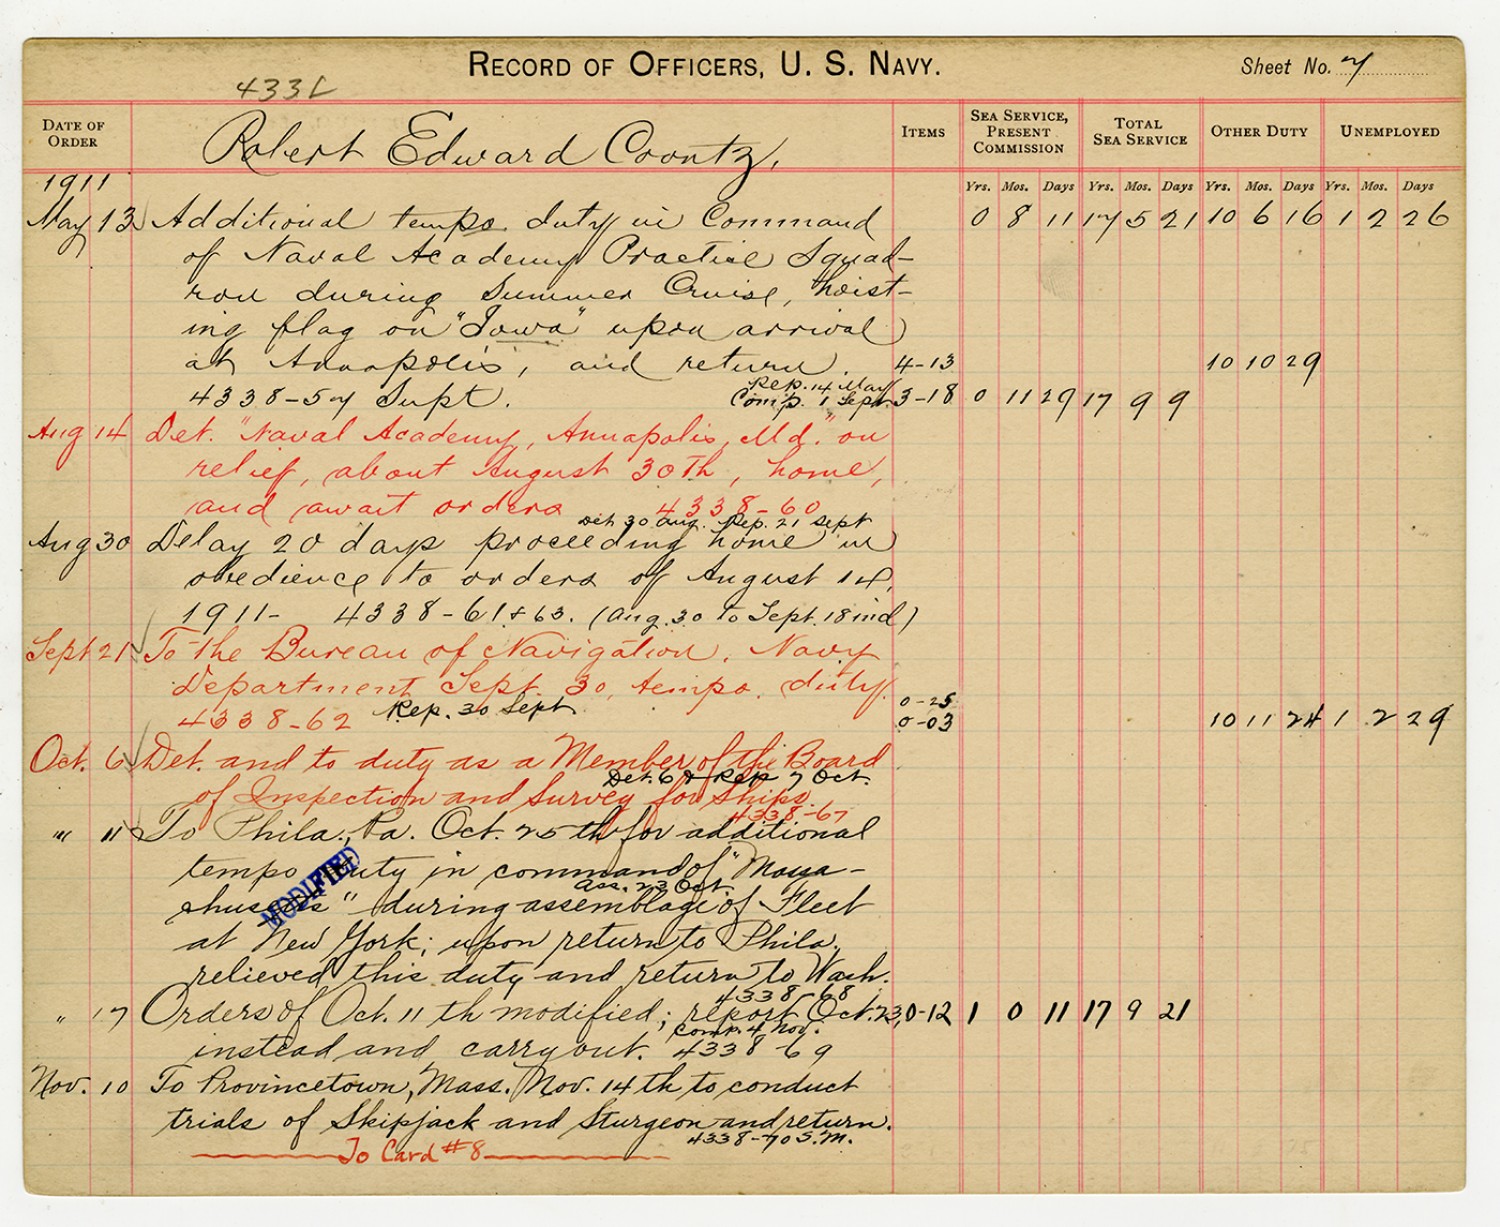 RECORD OF OFFICERS, U. S. NAVY.
Sheet No. 7
4331
DATE OF ORDER
Robert Edward Coontz,
ITEMS
SEA SERVICE, PRESENT COMMISSION
TOTAL SEA SERVICE
OTHER DUTY
UNEMPLOYED
Yrs. Mos. Days Yrs. Mos. Days Yrs. Mos. Days Yrs. Mos. Days
1911
May 13 Additional tempo. duty in Command 0 8 11 17 5 21 10 6 16 1 2 26
of Naval Academy Practice Squad-
ron during Summer Cruise, hoist-
ing flag on "Iowa" upon arrival
at Annapolis, and return. 4-13 10 10 29
Rep. 14 May
4338-57 Supt. Comp. 1 Sept. 3-18 0 11 29 17 9 9
Aug 14 Det. "Naval Academy, Annapolis, Md." on
relief, about August 30th, home,
and await orders 4338-60
Det. 30 Aug. Rep. 21 Sept
Aug 30 Delay 20 days proceeding home in
obedience to orders of August 14,
1911- 4338-61 & 63. (Aug. 30 to Sept. 18 incl)
Sept 21 To the Bureau of Navigation, Navy
Department Sept. 30, tempo. duty.
0-25
4338-62 Rep. 30 Sept. 0-03 10 11 24 1 2 29
Oct. 6 Det. and to duty as a Member of the Board
Det. 6 & Rep 7 Oct.
of Inspection and Survey for Ships.
4338-67
" 11 To Phila., Pa. Oct. 25th for additional
tempo duty in command of "Massa-
Ass. 23 Oct.
chusetts" during assemblage of Fleet
MODIFIED
at New York; upon return to Phila.
relieved this duty and return to Wash.
4338-68
" 17 Orders of Oct. 11th modified; report Oct. 23, 0-12 1 0 11 17 9 21
Comp. 4 Nov.
instead and carry out. 4338-69
Nov. 10 To Provincetown, Mass. Nov. 14th to conduct
trials of Skipjack and Sturgeon and return.
4338-70 S.M.
To Card #8